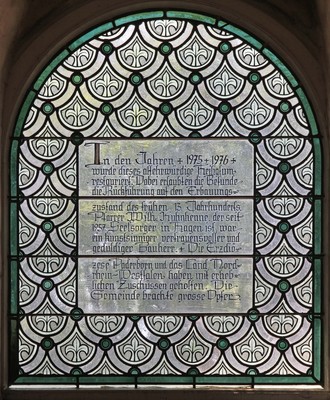 In den Jahren + 1975 + 1976 +
wurde dieses altehrwürdige Heiligtum
restauriert. Dabei erlaubten die Befunde
die Rückführung auf den Erbauungs-
zustand des frühen 13. Jahrhunderts.
Pfarrer Wilh. Kuhnhenne, der seit
1957 Seelsorger in Hagen ist, war
ein kunstsinniger verständnisvoller und
geduldiger Bauherr + Die Erzdiö-
zese Paderborn und das Land Nord-
rhein-Westfalen haben mit erheb-
lichen Zuschüssen geholfen. Die
Gemeinde brachte grosse Opfer